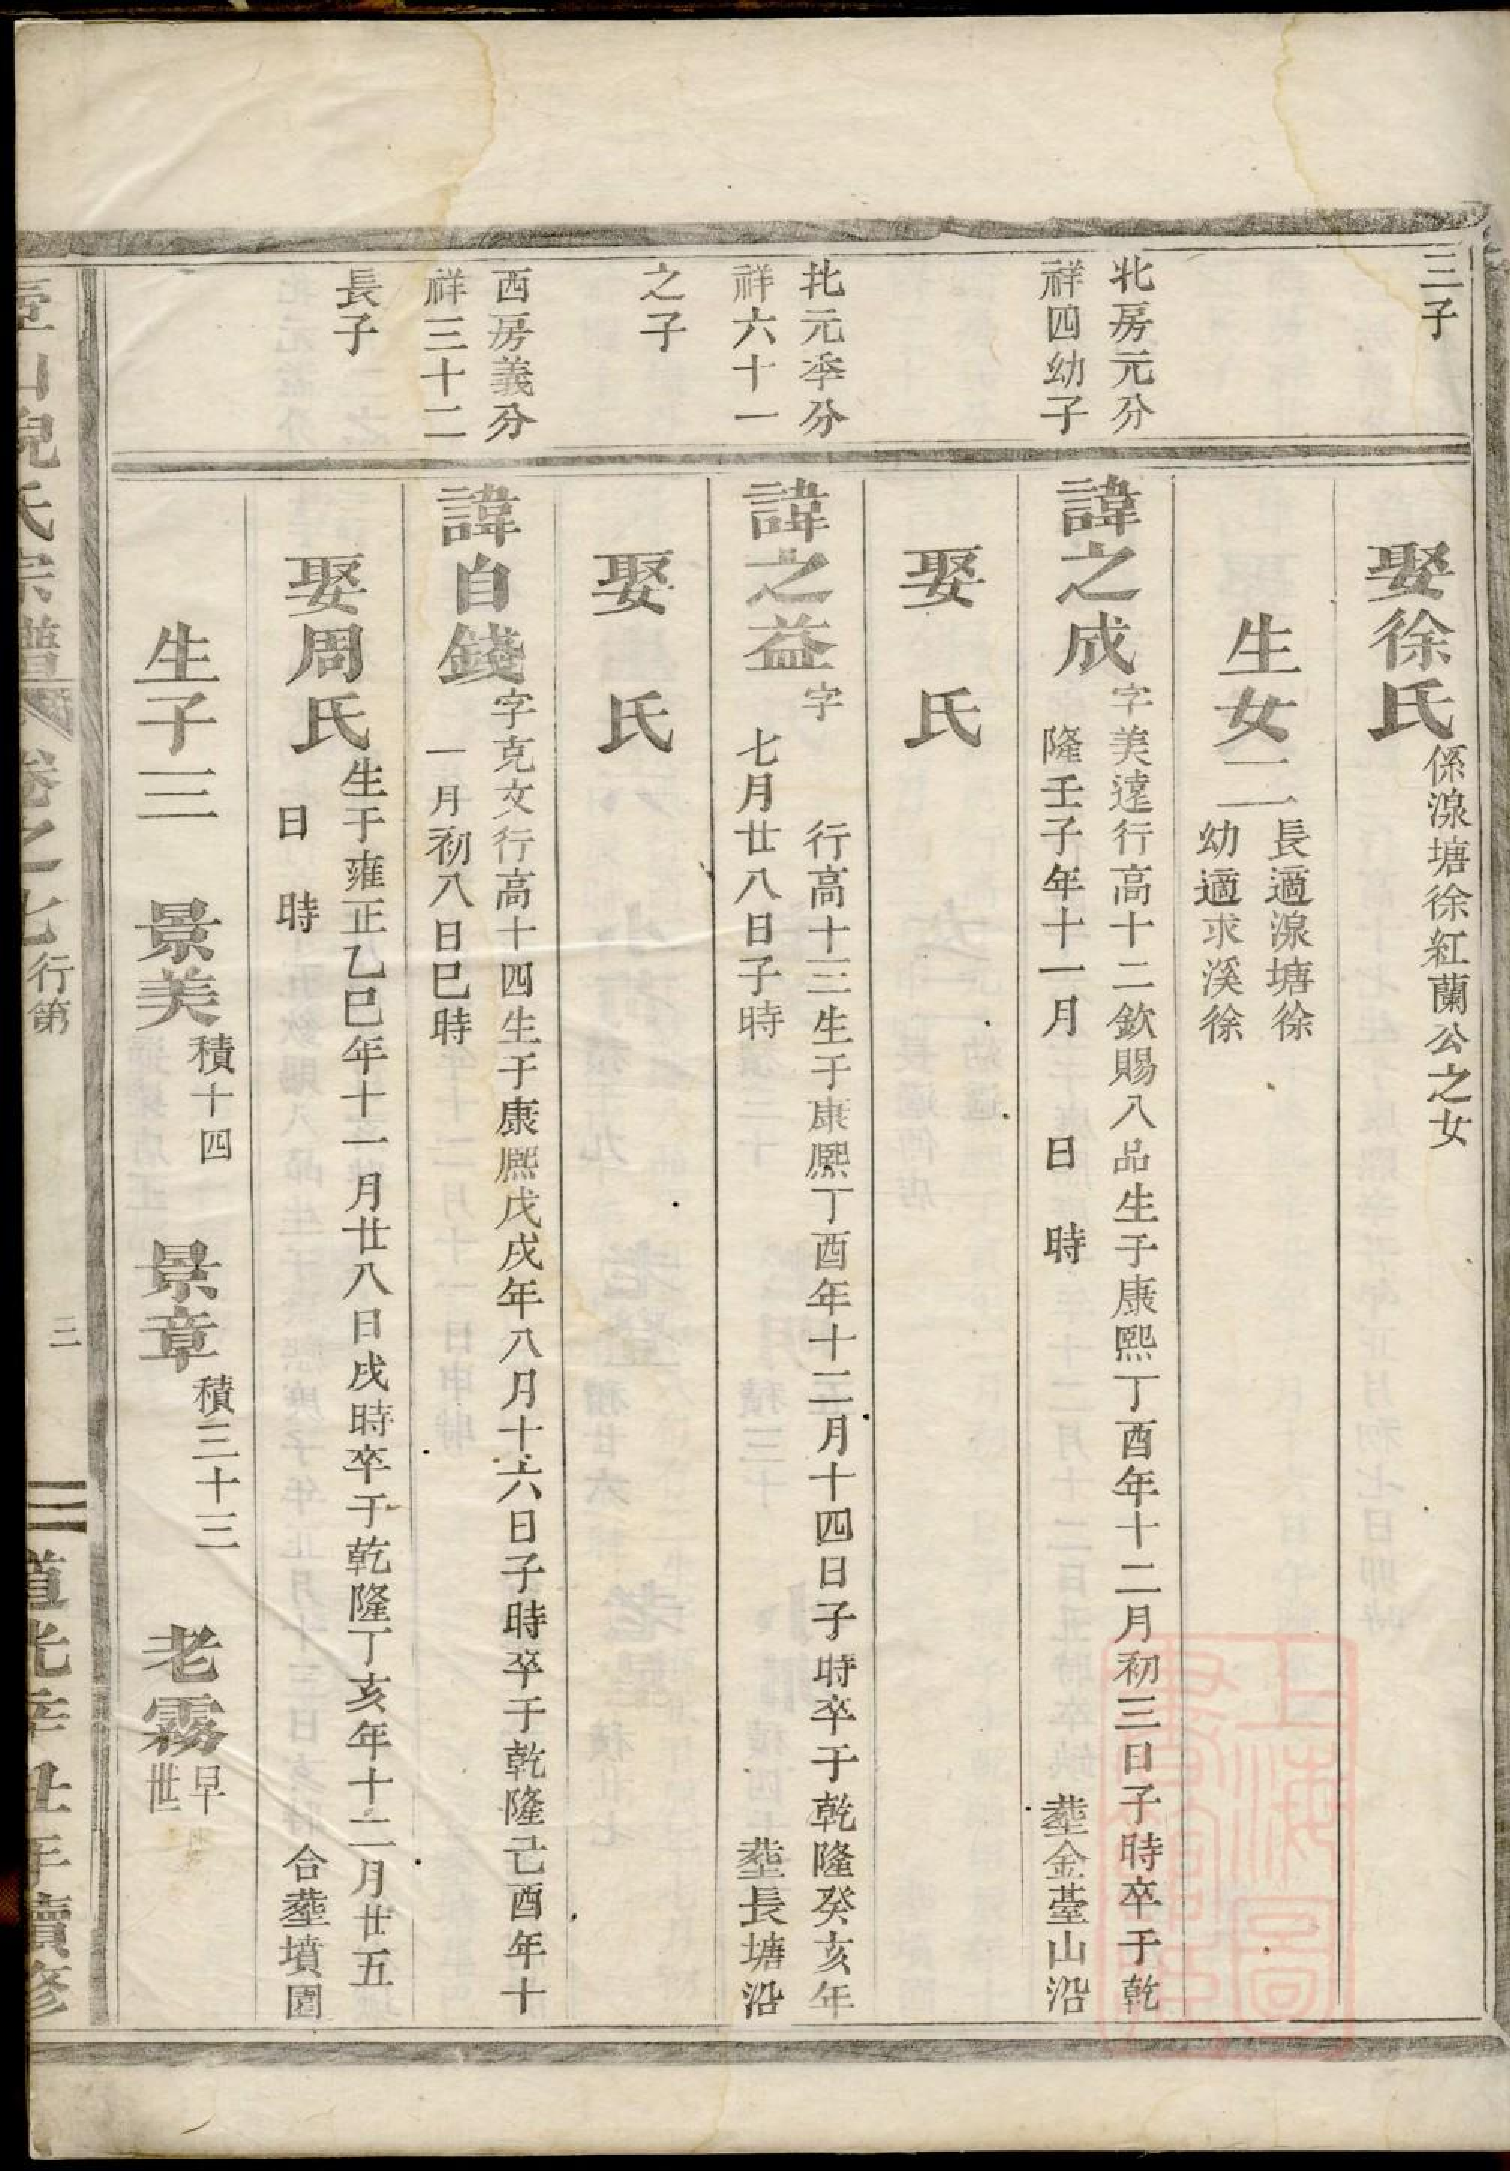 三子
娶徐氏係湶塘徐紅蘭公之女
生女二長適湶塘徐
幼適求溪徐
北房元分
祥四幼子
諱之成字美遠行高十二欽賜八品生于康熙丁酉年十二月初三日子時卒于乾
隆壬子年十一月 日 時 塟金臺山沿
娶 氏
北元季分
祥六十一
之子
諱之益字 行高十三生于康熙丁酉年十二月十四日子時卒于乾隆癸亥年
七月廿八日子時 塟長塘沿
娶 氏
西房義分
祥三十二
長子
諱自錢字克文行高十四生于康熙戊戌年八月十六日子時卒于乾隆己酉年十
一月初八日巳時
娶周氏生于雍正乙巳年十一月廿八日戌時卒于乾隆丁亥年十二月廿五
日 時 合塟墳園
生子三 景美積十四 景章積三十三 老霧早世
山倪氏宗譜 卷之七行第 三 道光辛丑年續修
上海圖書館藏